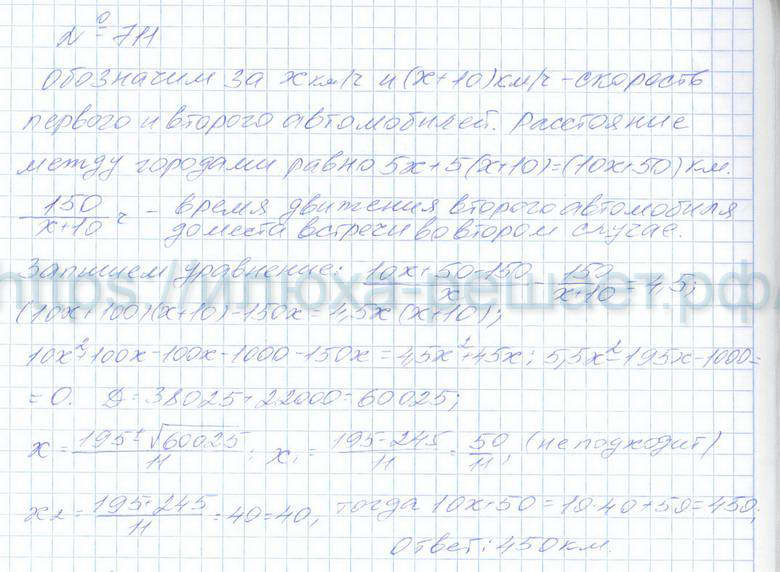 № 711
Обозначим за x км/ч и (x+10) км/ч - скорость
первого и второго автомобилей. Расстояние
между городами равно 5x+5(x+10)=(10x+50) км.
150/(x+10) ч - время движения второго автомобиля
до места встречи во втором случае.
Запишем уравнение: (10x+50-150)/x - 150/(x+10) = 4,5;
https://илюха-решает.рф/
(10x+100)(x+10)-150x=4,5x(x+10);
10x²+100x-100x-1000-150x=4,5x²+45x; 5,5x²-195x-1000=
=0. Д=38025+22000=60025;
x = (195±√60025)/11; x₁ = (195-245)/11 = 50/11; (не подходит)
x₂ = (195+245)/11 = 40 = 40, тогда 10x+50=10·40+50=450;
Ответ: 450 км.